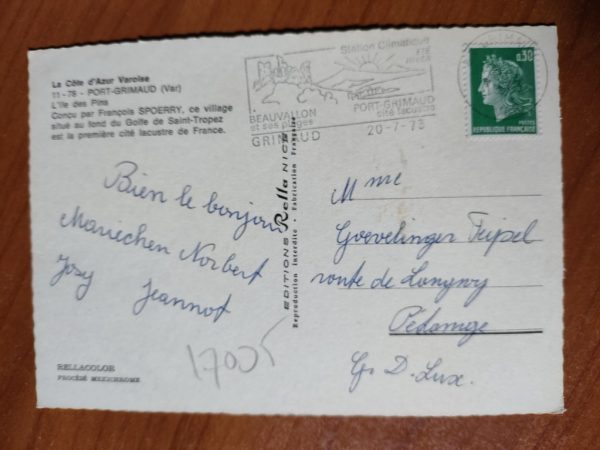 La Côte d'Azur Varoise
11-78 - PORT-GRIMAUD (Var)
L'Ile des Pins
Conçu par François SPOERRY, ce village
situé au fond du Golfe de Saint-Tropez
est la première cité lacustre de France.
Station Climatique
ÉTÉ
HIVER
BEAUVALLON
et ses plages
GRIMAUD
PORT-GRIMAUD
cité lacustre
20-7-73
GRIMAUD
0,30
POSTES
REPUBLIQUE FRANÇAISE
Bien le bonjour
Mariechen Norbert
Josy Jeannot
EDITIONS Rella NICE
Reproduction Interdite - Fabrication Française
Mme
Goevelinger Tripsel
route de Longwy
Pédange
Gr. D. Lux.
RELLACOLOR
PROCÉDÉ MEXICHROME
17005